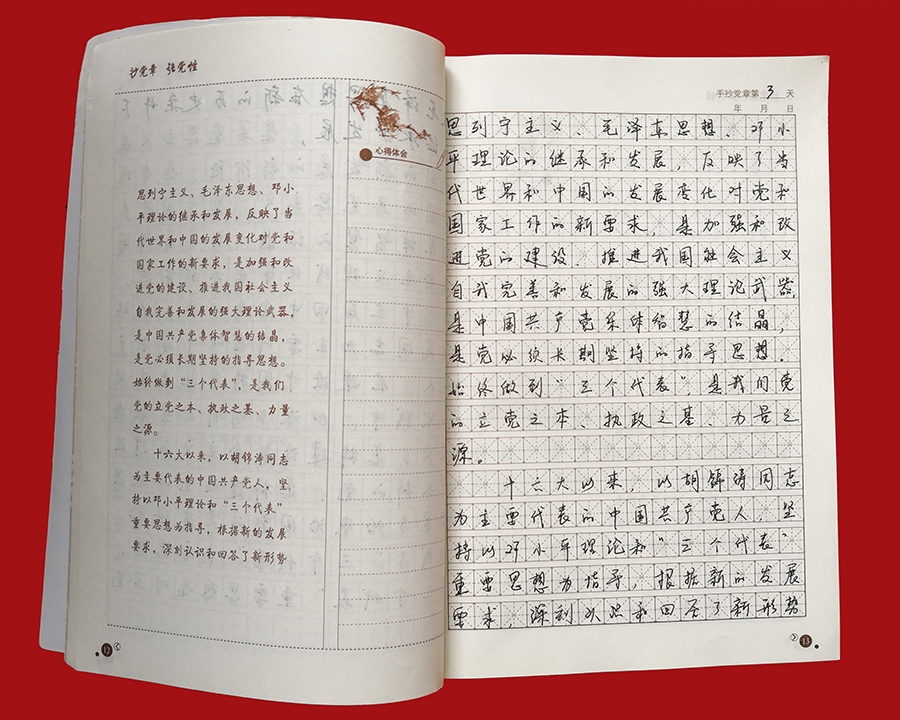 抄党章 强党性
心得体会
思列宁主义、毛泽东思想、邓小
平理论的继承和发展，反映了当
代世界和中国的发展变化对党和
国家工作的新要求，是加强和改
进党的建设、推进我国社会主义
自我完善和发展的强大理论武器，
是中国共产党集体智慧的结晶，
是党必须长期坚持的指导思想。
始终做到“三个代表”，是我们
党的立党之本、执政之基、力量
之源。
十六大以来，以胡锦涛同志
为主要代表的中国共产党人，坚
持以邓小平理论和“三个代表”
重要思想为指导，根据新的发展
要求，深刻认识和回答了新形势
12
手抄党章第 3 天
年 月 日
思列宁主义、毛泽东思想、邓小
平理论的继承和发展，反映了当
代世界和中国的发展变化对党和
国家工作的新要求，是加强和改
进党的建设、推进我国社会主义
自我完善和发展的强大理论武器，
是中国共产党集体智慧的结晶，
是党必须长期坚持的指导思想。
始终做到“三个代表”，是我们党
的立党之本、执政之基、力量之
源。
十六大以来，以胡锦涛同志
为主要代表的中国共产党人，坚
持以邓小平理论和“三个代表”
重要思想为指导，根据新的发展
要求，深刻认识和回答了新形势
13